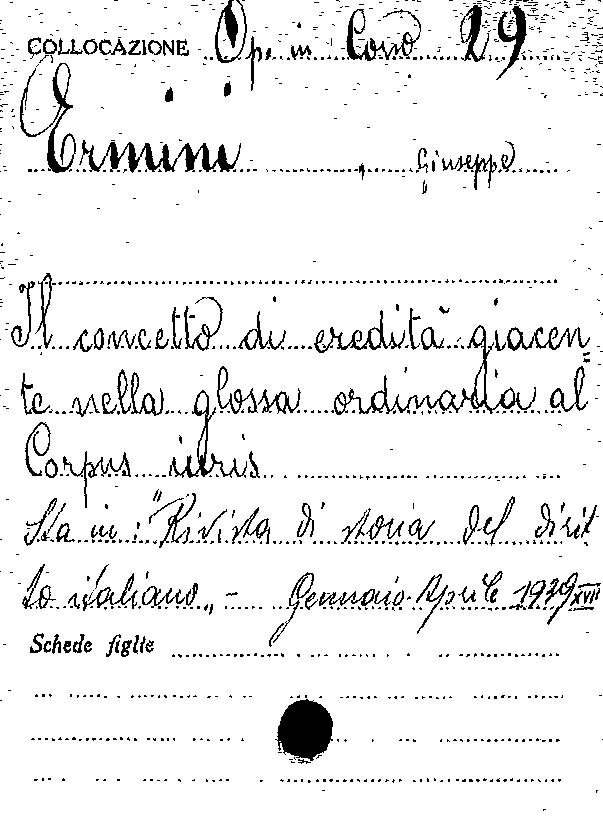 COLLOCAZIONE Op. in Cons 29
Ermini , Giuseppe
Il concetto di eredità giacen=
te nella glossa ordinaria al
Corpus iuris
Sta in: "Rivista di storia del dirit
to italiano„ - Gennaio-Aprile 1939 XVII
Schede figlie